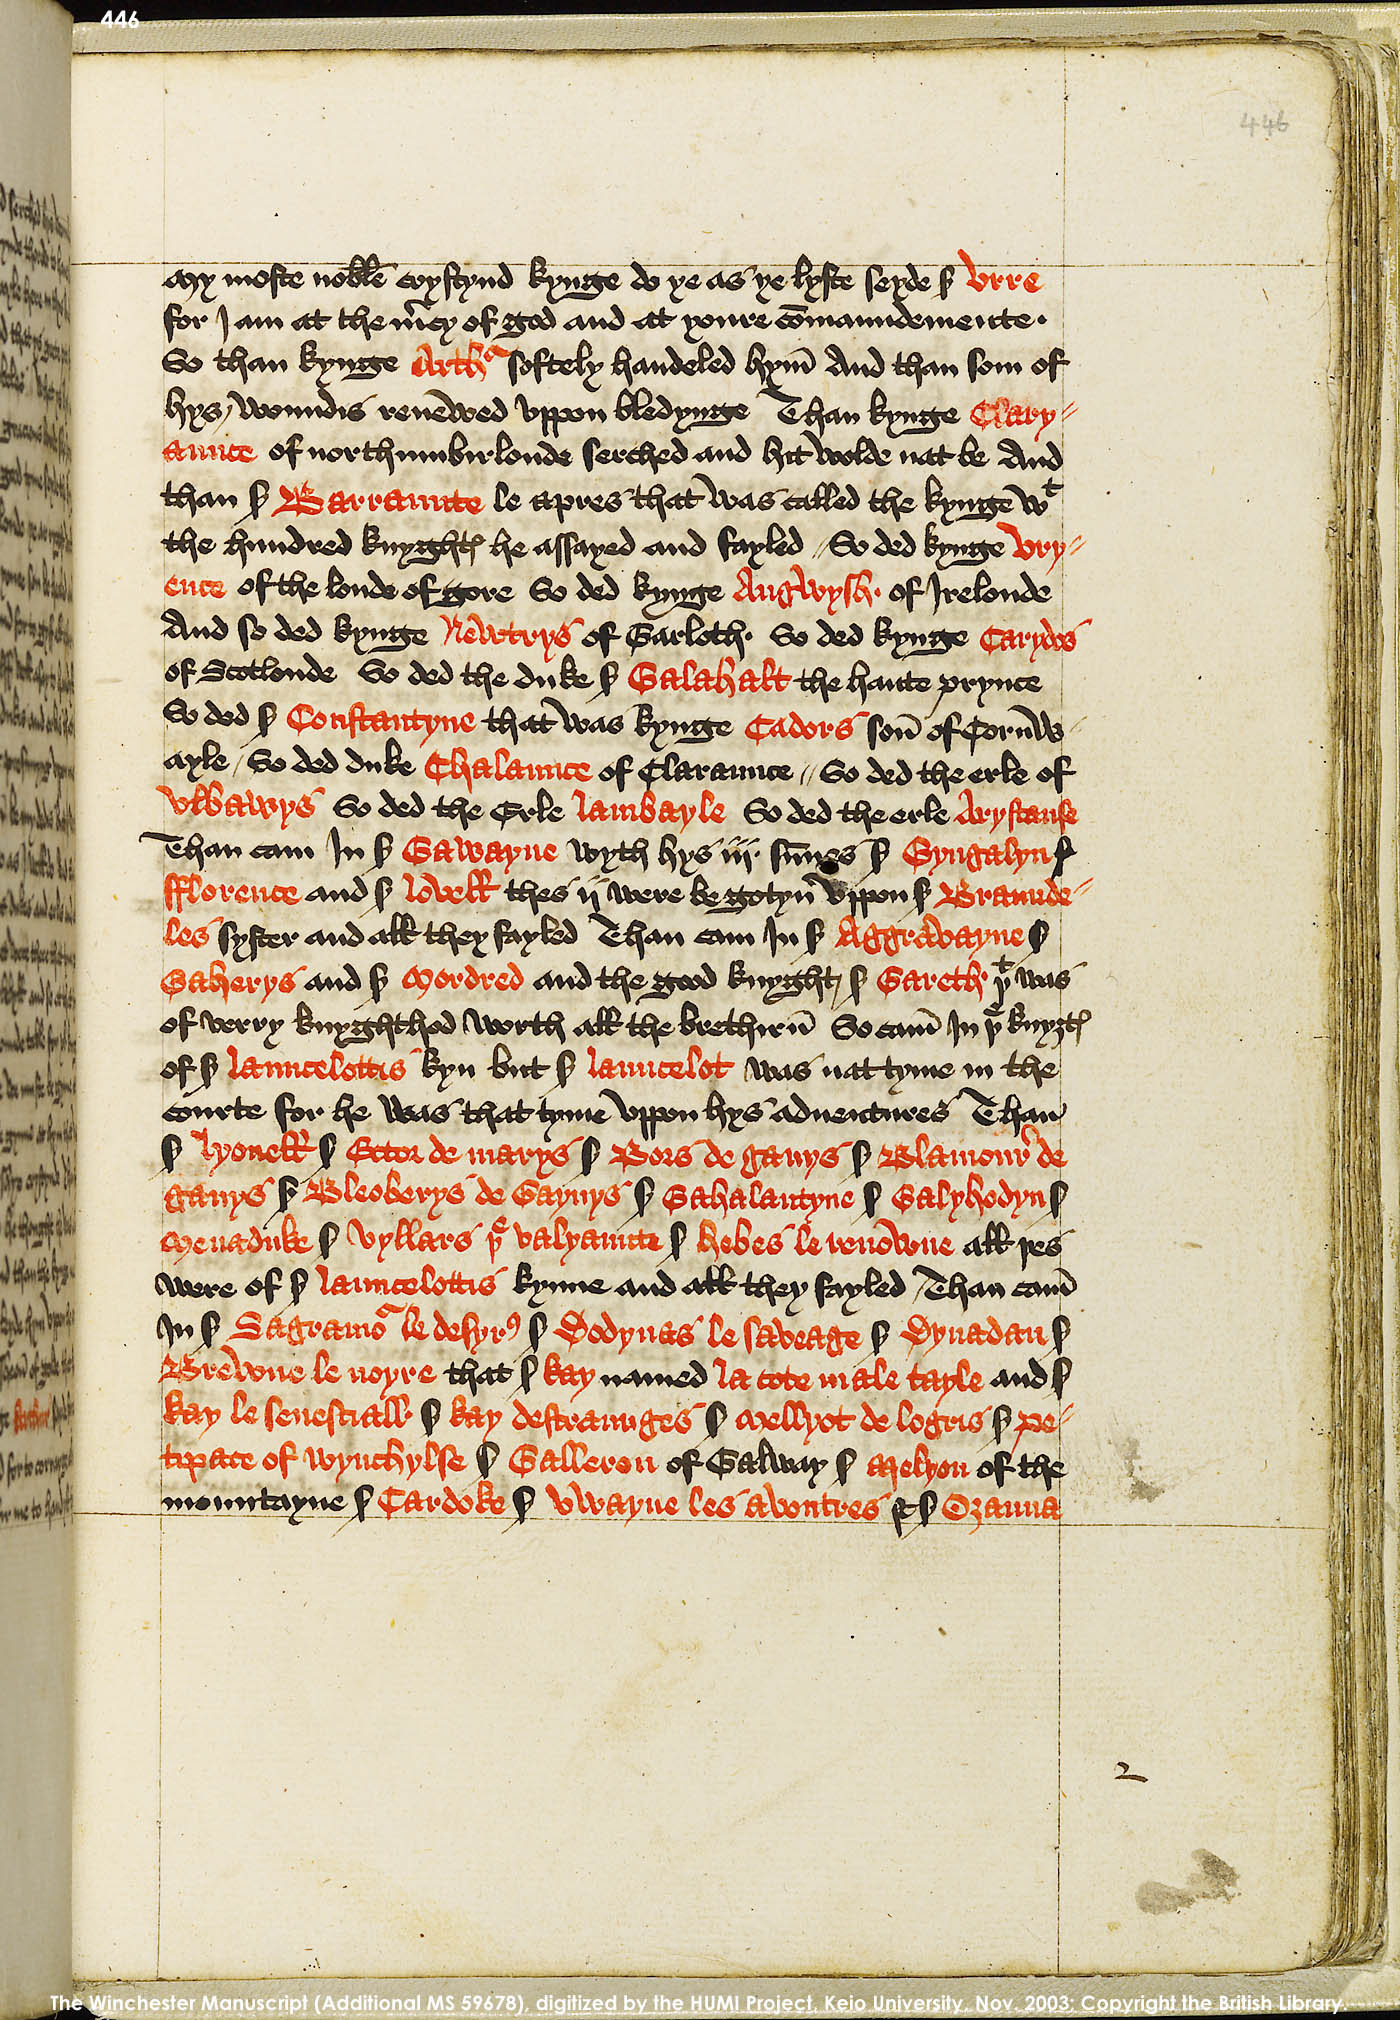 446
446
My moste noble crystynd kynge do ye as ye lyste seyde s Vrre
for I am at the m̄cy of god and at youre cōmaundemente.
So than kynge Arthᵃ softely handeled hym̄ And than som of
hys woundis renewed vppon bledynge Than kynge Clary-
aunce of northumbirlonde serched and hit wolde nat be And
than s Barraunte le apres that was called the kynge wᵗ
the hundred knyghtꝭ he assayed and fayled // So ded kynge Vry-
ence of the londe of gore So ded kynge Angwysh. of Irelonde
And so ded kynge Newtrys of Garloth. So ded kynge Carydos
of Scotlonde So ded the duke s Galahalt the haute prynce
So ded s Constantyne that was kynge Cadors son̄ of Corn̄w-
ayle / So ded duke Chalaunce of Claraunce // So ded the erle of
Vlbawys So ded the Erle lambayle So ded the erle Arystanse
Than cam In s Gawayne wyth hys iij. sūnes s Gyngalyn s
fflorence and s lovell thes ij were be gotyn̄ vppon s Braunde-
les syster and all they fayled Than cam In s Aggravayne s
Gaherys and s Mordred and the good knyght s Gareth. þᵗ was
of verry knyghthod worth all the brethirn̄ So cam̄ In þᵉ knyȝtꝭ
of s launcelottis kyn but s launcelot was nat tyme in the
courte for he was that tyme vppon hys adventures Than
s lyonell s Ector de marys s Bors de ganys s Blamour de
ganys s Bleoberys de Gaynys s Gahalantyne s Galyhodyn s
Menaduke s Vyllars þᵉ valyaunte s hebes le renowne all þes
were of s launcelottis kynne and all they fayled / Than cam̄
In s Sagramoᵃ le desyrꝰ s Dodynas le saveage s Dynadan s
Brewne le noyre that s kay named la cote male tayle and s
kay le senesciall. s kay destraunges s Mellyot de logris s pe-
tipace of wynchylse s Galleron of Galway s Melyon of the
mountayne s Cardoke s Vwayne les avoutres & s Ozanna
2
The Winchester Manuscript (Additional MS 59678), digitized by the HUMI Project, Keio University, Nov. 2003; Copyright the British Library.